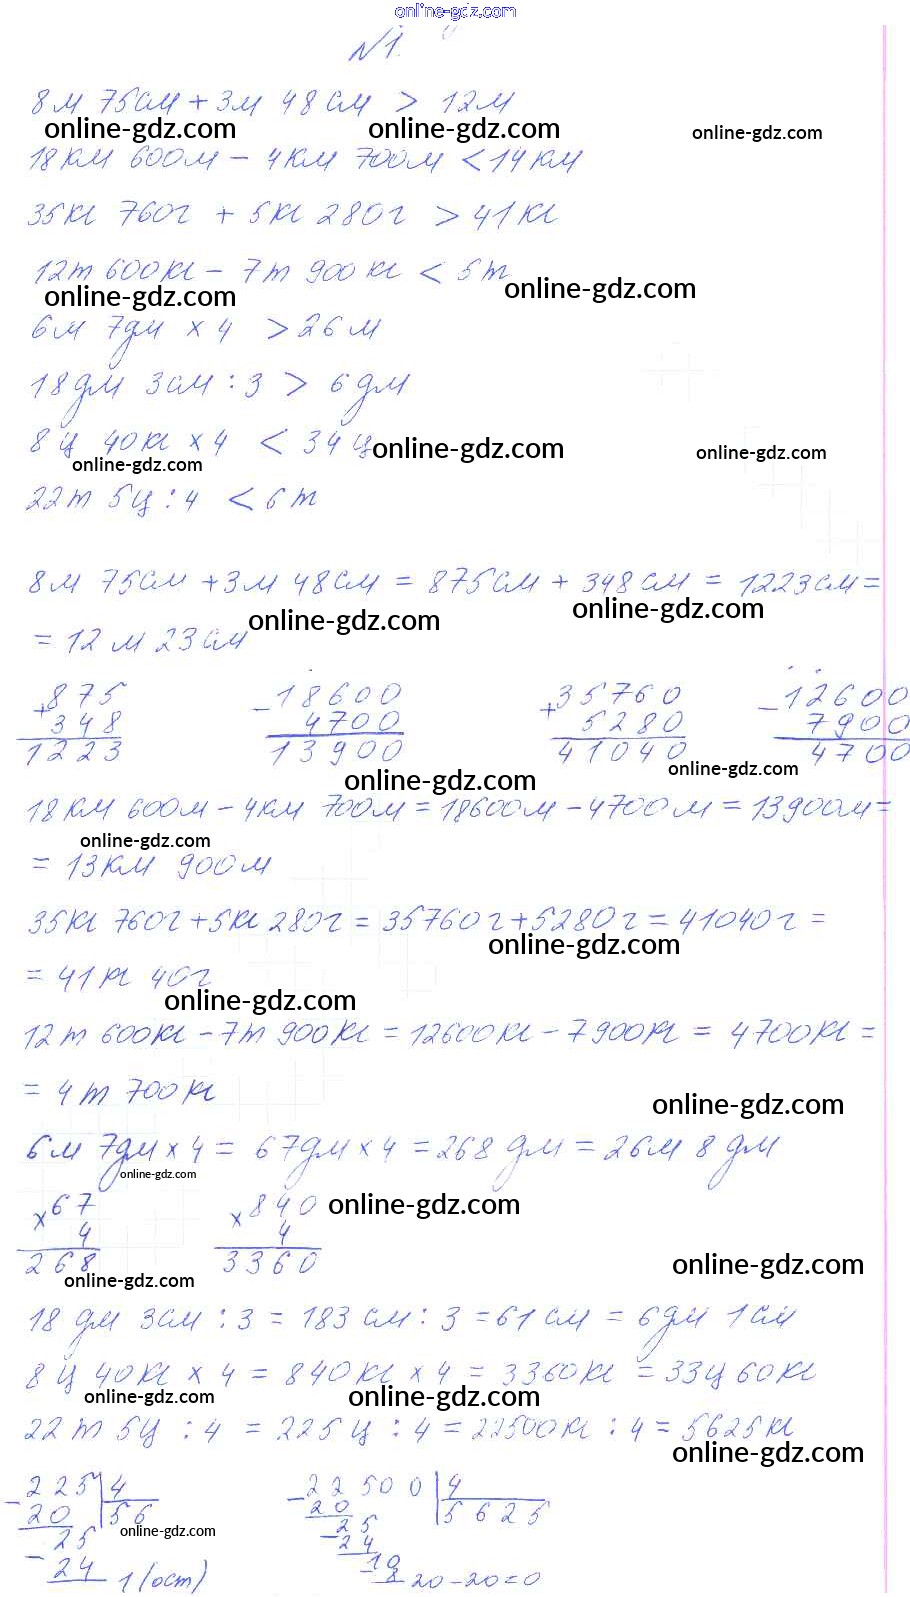 online-gdz.com
№1.
8м 75см + 3м 48см > 12м
online-gdz.com online-gdz.com online-gdz.com
18км 600м - 4км 700м < 14км
35кг 760г + 5кг 280г > 41кг
12т 600кг - 7т 900кг < 5т
online-gdz.com online-gdz.com
6м 7дм × 4 > 26м
18дм 3см : 3 > 6дм
8ц 40кг × 4 < 34ц
online-gdz.com online-gdz.com online-gdz.com
22т 5ц : 4 < 6т
8м 75см + 3м 48см = 875см + 348см = 1223см =
online-gdz.com online-gdz.com
= 12м 23см
+875 -18600 +35760 -12600
348 4700 5280 7900
1223 13900 41040 4700
online-gdz.com online-gdz.com
18км 600м - 4км 700м = 18600м - 4700м = 13900м =
online-gdz.com
= 13км 900м
35кг 760г + 5кг 280г = 35760г + 5280г = 41040г =
online-gdz.com
= 41кг 40г
online-gdz.com
12т 600кг - 7т 900кг = 12600кг - 7900кг = 4700кг =
= 4т 700кг
online-gdz.com
6м 7дм × 4 = 67дм × 4 = 268дм = 26м 8дм
online-gdz.com
×67 ×840
online-gdz.com
4 4
268 3360
online-gdz.com online-gdz.com
18дм 3см : 3 = 183см : 3 = 61см = 6дм 1см
8ц 40кг × 4 = 840кг × 4 = 3360кг = 33ц 60кг
online-gdz.com online-gdz.com
22т 5ц : 4 = 225ц : 4 = 22500кг : 4 = 5625кг
online-gdz.com
-225 4 -22500 4
20 56 20 5625
-25 -25
online-gdz.com
24 24
1(ост) -10
8 20-20=0